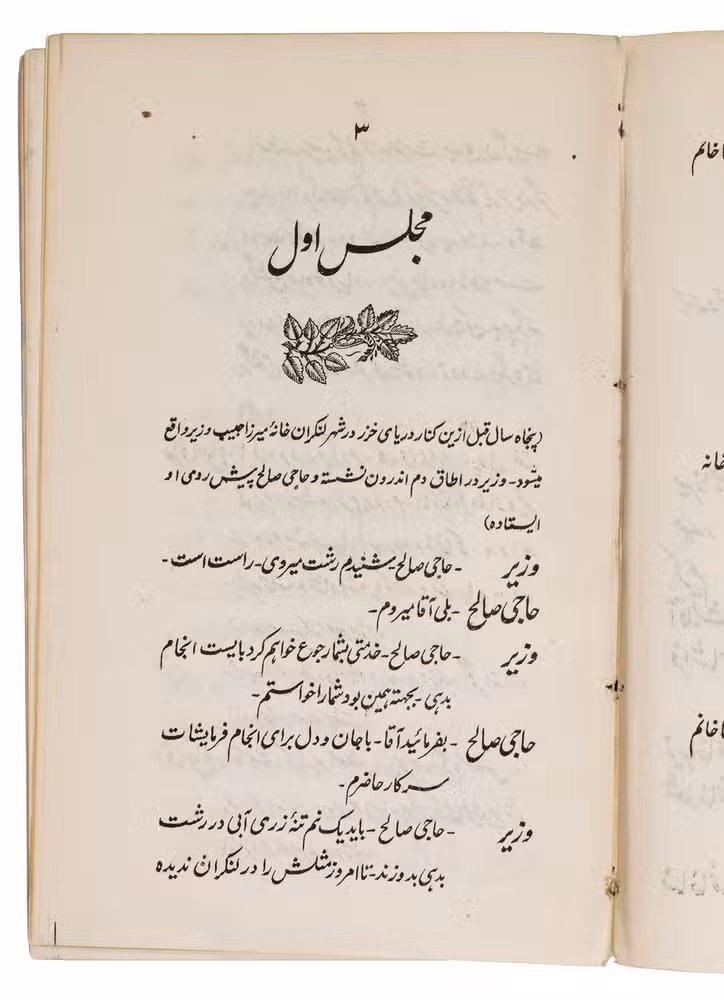 ۳
مجلس اول
(پنجاه سال قبل ازین کنار دریای خزر در شهر لنکران خانهٔ میرزا حبیب وزیر واقع
میشود - وزیر در اطاق دم اندرون نشسته و حاجی صالح پیش روی او
ایستاده)
وزیر - حاجی صالح - شنیدم رشت میروی - راست است -
حاجی صالح - بلی آقا میروم -
وزیر - حاجی صالح - خدمتی بشما رجوع خواهم کرد بایست انجام
بدهی - بجهته همین بود شما را خواستم -
حاجی صالح - بفرمائید آقا - با جان و دل برای انجام فرمایشات
سرکار حاضرم -
وزیر - حاجی صالح - باید یک نم تنهٔ زری آبی در رشت
بدهی بدوزند - تا امروز مثلش را در لنکران ندیده
خانم
خانه
خانم